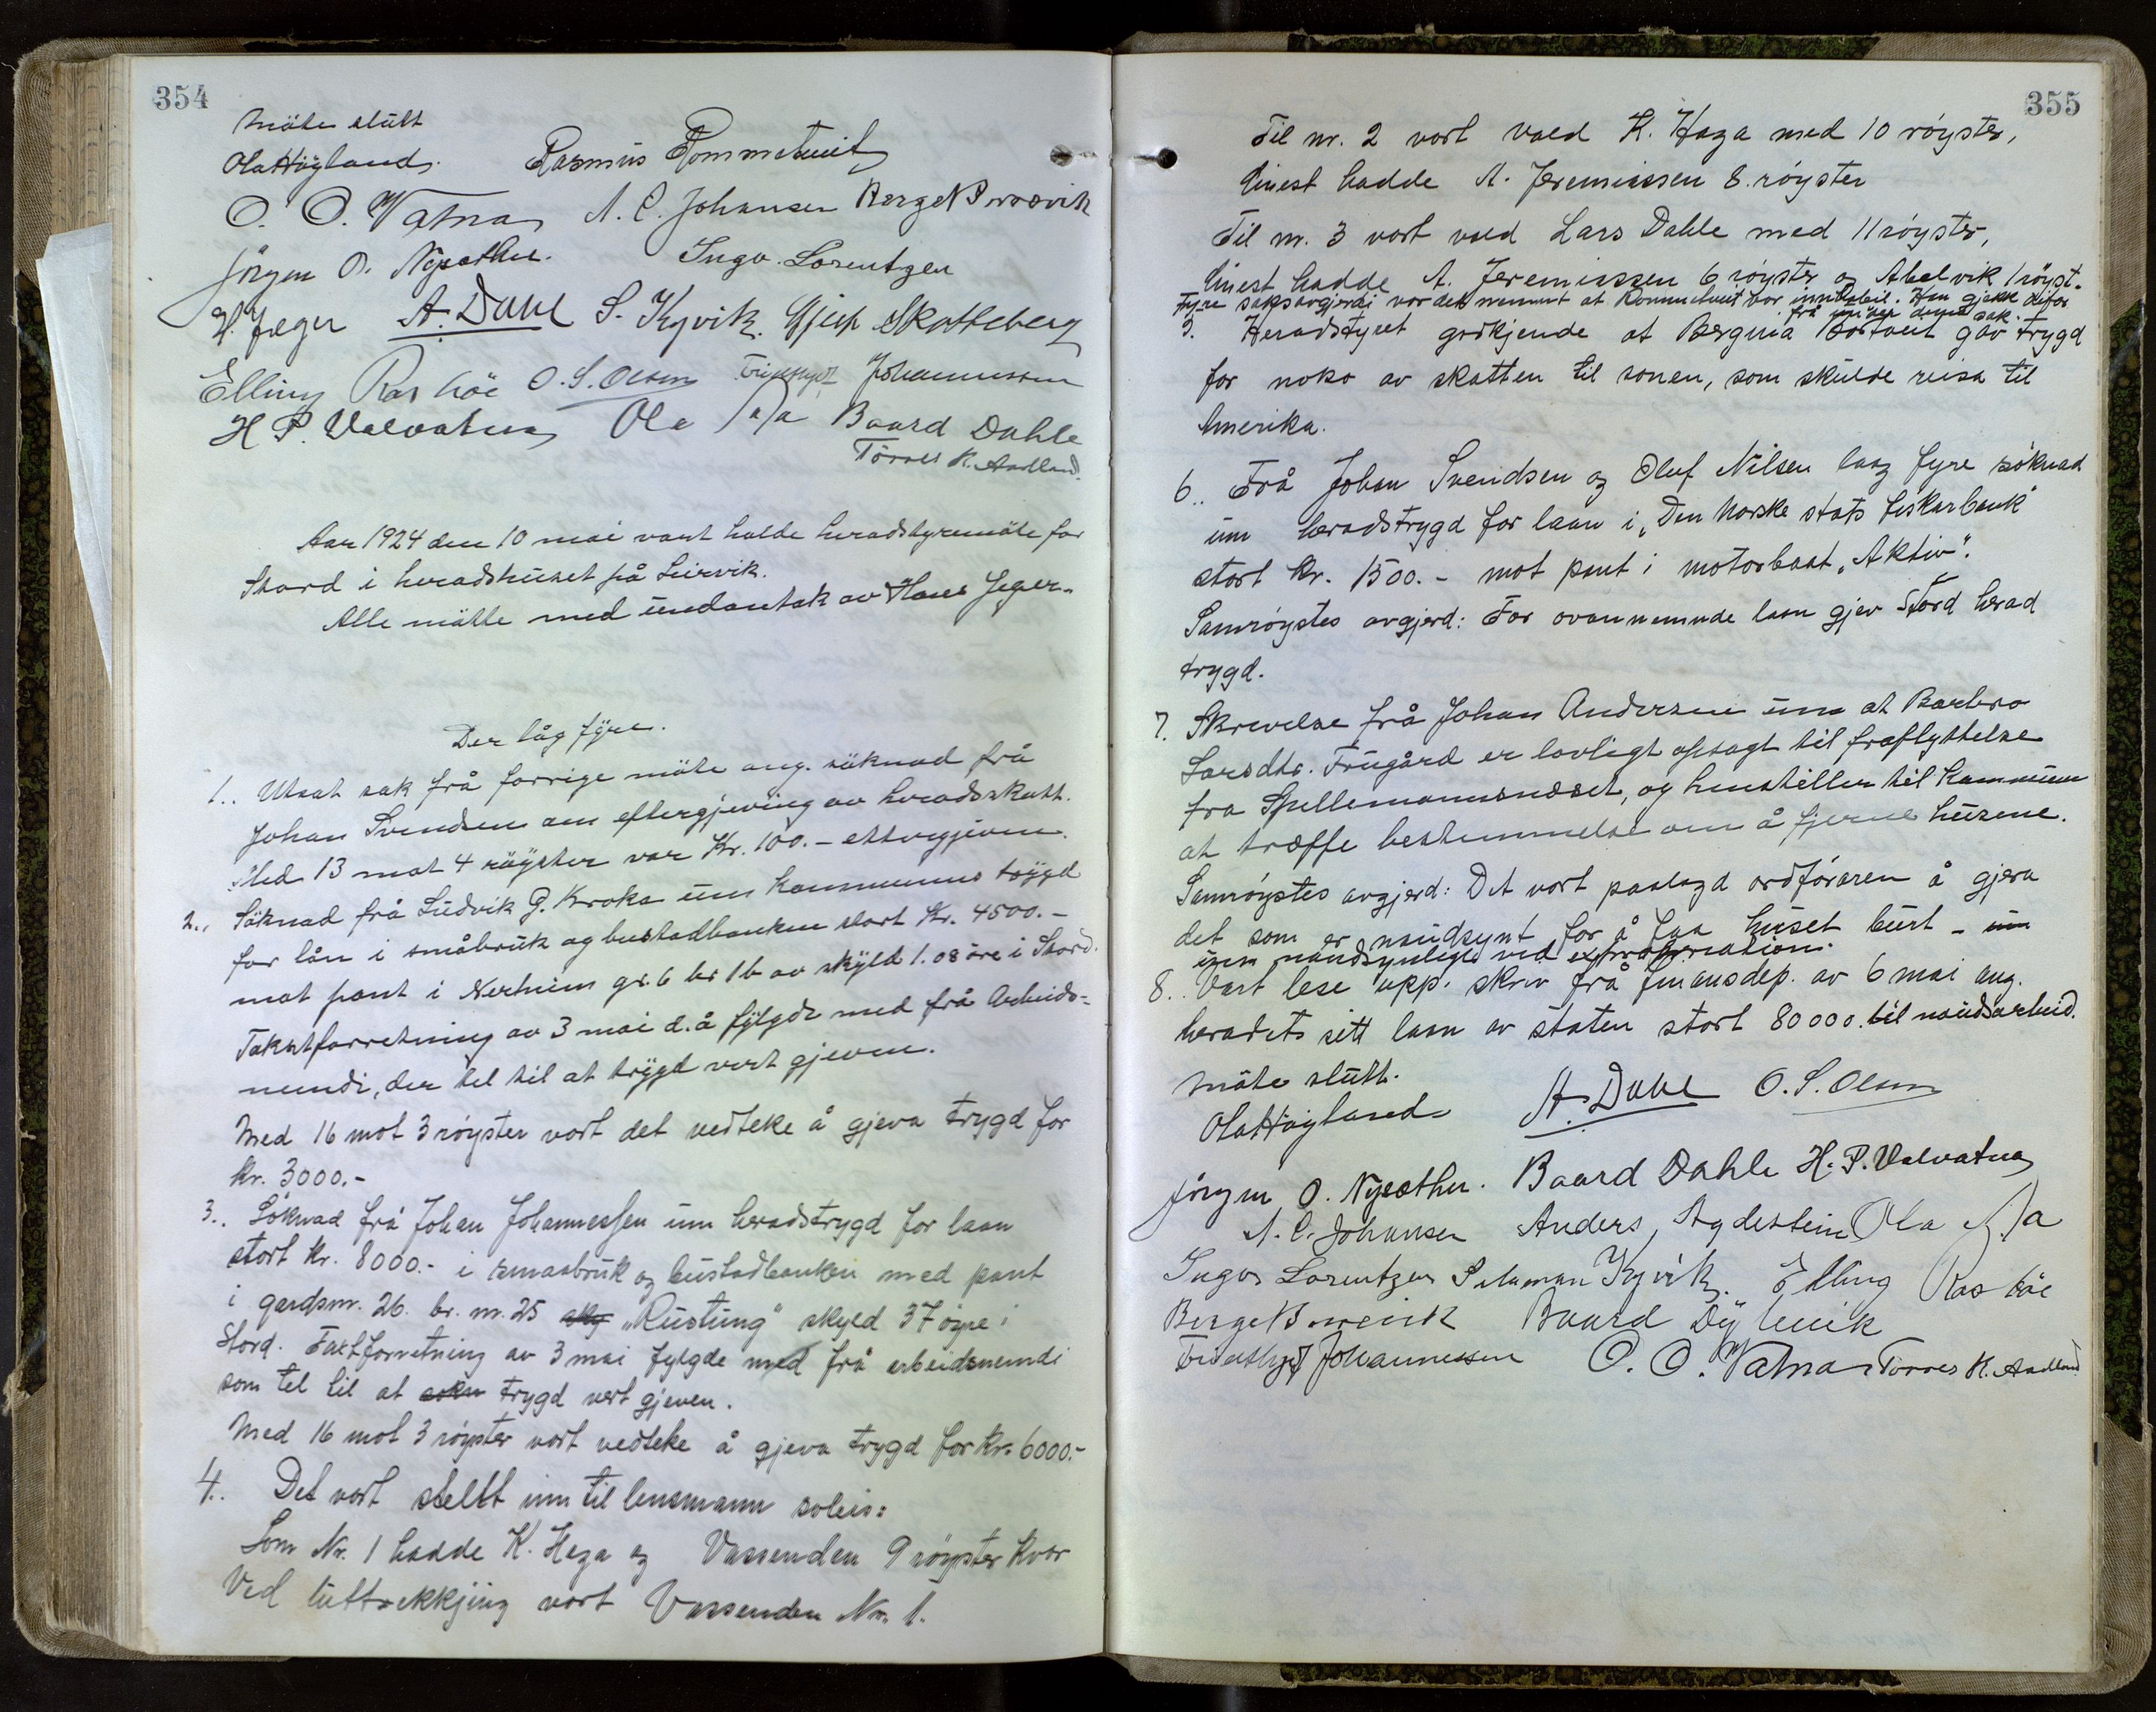 354
Möte slutt
Ola Höyland. Rasmus Rommetveit
O. O. Vatna A. C. Johansen Berge N Prosvik
Jörgen O. Nysæther. Ingv. Lorentzen
H. Jæger A. Dahl S. Kyvik. Gjert Skotteberg
Elling Ras höe O. S. Olsen Johannessen
H P. Valvatna Ola Baard Dahle
Törres K. Aadland.
Aar 1924 den 10 mai vart halde heradstyremöte for
Stord i heradshuset på Leirvik.
Alle mötte med undantak av Hans Jeger.
Der låg fyre.
1.. Utsat sak frå forrige möte ang. söknad frå
Johan Svendsen om eftergjeving av heradsskatt.
Med 13 mot 4 röyster var Kr. 100.- ettergjeven.
2.. Söknad frå Ludvik G. Kroka um kommunens trygd
for lån i småbruk og bustadbanken stort Kr. 4500.-
mot pant i Nertuun gr. 6 br 16 av skyld 1.08 öre i Stord.
Takstforretning av 3 mai d.å fylgde med frå Arbeids-
nemndi, der tel til at trygd vert gjeven.
Med 16 mot 3 röyster vort det vedteke å gjeva trygd for
kr. 3000.-
3.. Söknad frå Johan Johannessen um heradstrygd for laan
stort kr. 8000.- i smaabruk og bustadbanken med pant
i gardsnr. 26. br. nr. 25 sky „Rustung" skyld 37 öyre i
Stord. Takstforretning av 3 mai fylgde med frå arbeidsnemdi
som tel til at trygd vert gjeven.
Med 16 mot 3 röyster vort vedteke å gjeva trygd for kr. 6000.-
4.. Det vort stellt inn til lensmann soleis:
Som Nr. 1 hadde K. Haga og Vassenden 9 röyster kvar
Ved luttrekkjing vort Vassenden Nr. 1.
355
Til nr. 2 vort vald K. Haga med 10 röyster,
hinest hadde A. Jeremiassen 8. röyster
Til nr. 3 vort vald Lars Dahle med 11 röyster,
hinest hadde A. Jeremiassen 6 röyster og Abelvik 1 röyst.
Fyre saksavgjerdi var det nemnt at Rommetveit var innhabil. Han gjekk difor
frå under denne sak.
5. Heradstyret godkjende at Bergina Tortveit gav trygd
for noko av skatten til sonen, som skulde reisa til
Amerika.
6.. Frå Johan Svendsen og Oluf Nilsen laag fyre söknad
um heradstrygd for laan i „Den Norske stats fiskarbank"
stort kr. 1500.- mot pant i motorbaat „Aktiv".
Samröystes avgjerd: For ovannemnde laan gjev Stord herad
trygd.
7. Skrivelse frå Johan Andersen um at Barbro
Larsdtr. Frugård er lovligt opsagt til fraflyttelse
fra Spillemannsneset, og henstiller til kommunen
at træffe bestemmelse om å fjerne husene.
Samröystes avgjerd: Det vort paalagd ordföraren å gjera
det som er naudsynt for å faa huset burt – um
um naudsynleg ved expropriation.
8.. Vart lese upp. skriv frå finansdep. av 6 mai ang.
heradets sitt laan av staten stort 80000. til naudsarbeid.
Möte slutt.
Ola Höyland A. Dahl O. S. Olsen
Jörgen O. Nysæther. Baard Dahle H. P. Valvatna
A. C. Johansen Anders Agdestein Ola
Ingv. Lorentzen Salamon Kyvik. Elling Ras höe
Berge N Prosvik Baard Dyhuik
Johannessen O. O. Vatna Törres K. Aadland